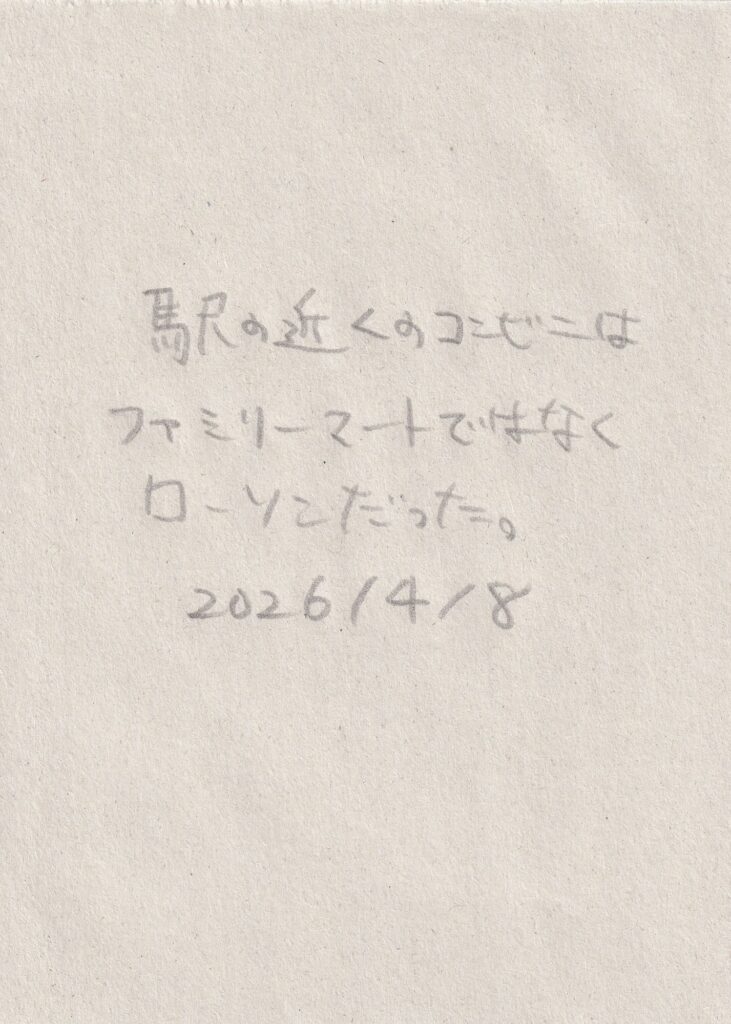 駅の近くのコンビニは
ファミリーマートではなく
ローソンだった。
2026/4/8